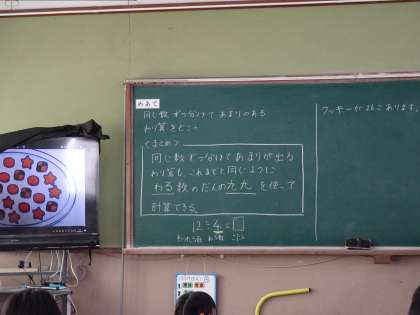 めあて
同じ数ずつ分けて あまりのある
わり算をとこう
<まとめ>
同じ数ずつ分けて あまりが出る
わり算も、これまでと同じように
わる数のだんの九九を使って
計算できる。
12÷4=□
わられる数 わる数 こたえ
クッキーが26こあります。